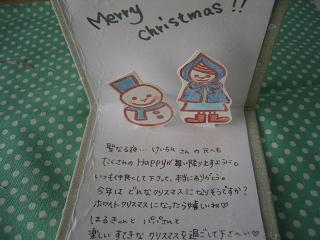 Merry
christmas!!
聖なる夜… けいちん さんの元へも
たくさんのHappyが舞い降りますように。
いつも仲良くして下さって、本当にありがとう。
今年は どんなクリスマスになりそうですか?
ホワイトクリスマスになったら嬉しいね♡
はるきゃんと パパさんと
楽しい すてきな クリスマスを過ごして下さい♡